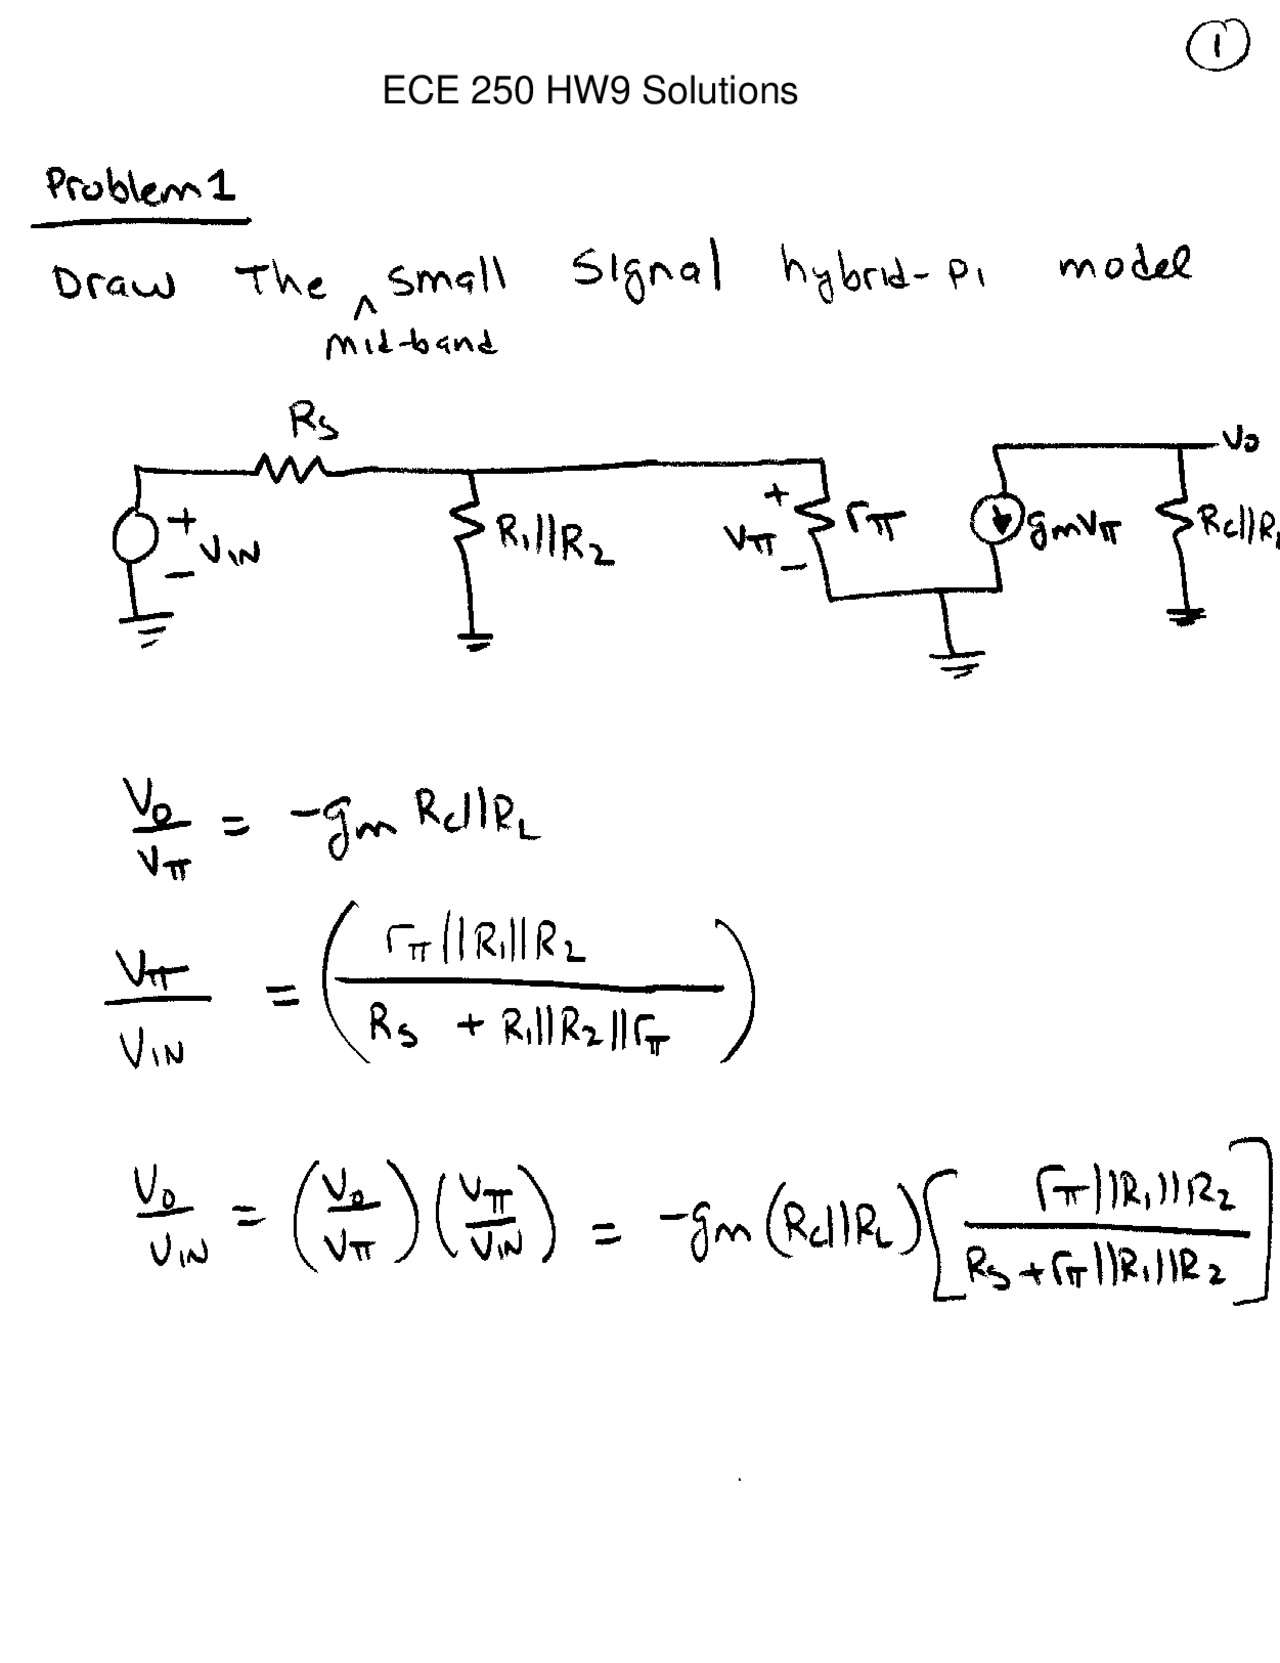 1
ECE 250 HW9 Solutions
Problem 1
Draw The ^ small signal hybrid-pi model
mid-band
Rs
Vo
+ VIN -
R1||R2
+ Vπ -
rπ
gmVπ
Rc||R
Vo/Vπ = -gm Rc||RL
Vπ/VIN = (rπ||R1||R2 / Rs + R1||R2||rπ)
Vo/VIN = (Vo/Vπ)(Vπ/VIN) = -gm (Rc||RL)[rπ||R1||R2 / Rs + rπ||R1||R2]